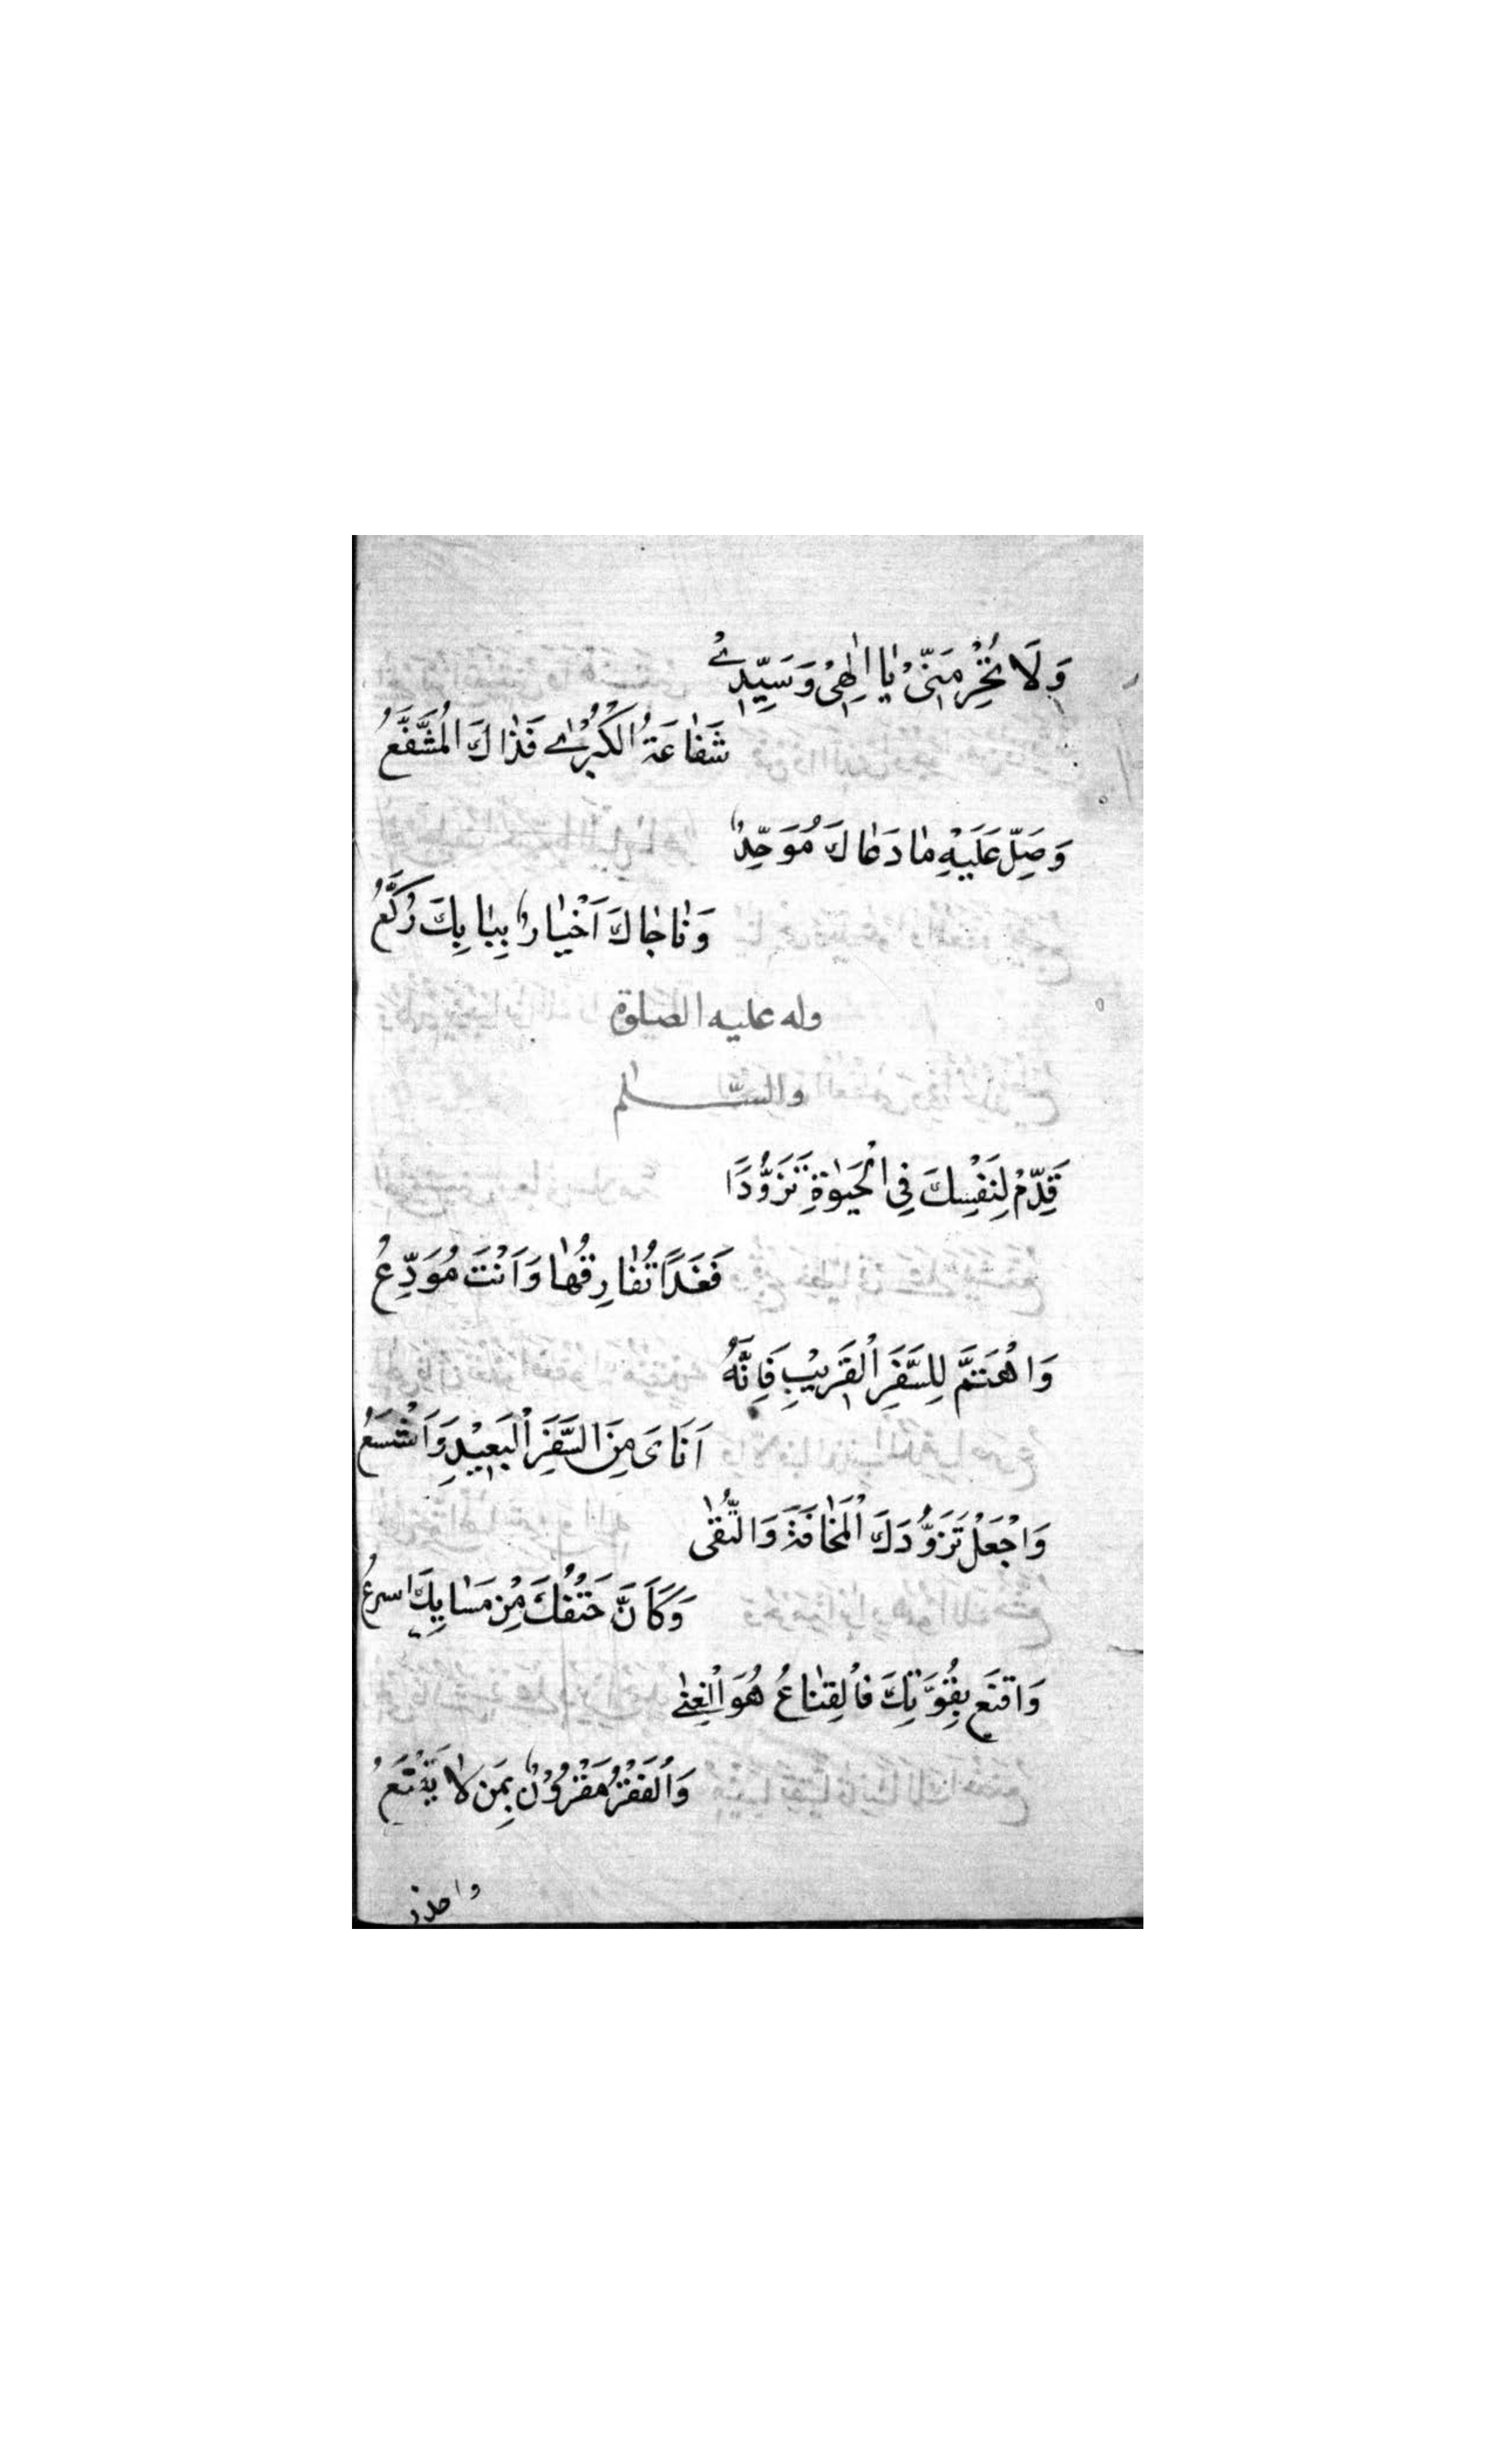 وَلَا تُحْرِمَنِّىْ يٰا اِلٰهِىْ وَسَيِّدِىْ
شَفٰاعَةُ الْكُبْرٰى فَذٰاكَ الْمُشَفَّعُ
وَصَلِّ عَلَيْهِ مٰا دَعٰاكَ مُوَحِّدٌ
وَنٰاجٰاكَ اَخْيٰارٌ بِبٰابِكَ رُكَّعُ
وله عليه الصلوة
والسّلٰم
قَدِّمْ لِنَفْسِكَ فِى الْحَيٰوةِ تَزَوُّدًا
فَغَدًا تُفٰارِقُهٰا وَاَنْتَ مُوَدِّعُ
وَاهْتَمَّ لِلسَّفَرِ الْقَرِيْبِ فَاِنَّهُ
اَنَاىَ مِنَ السَّفَرِ الْبَعِيْدِ وَاَشْسَعُ
وَاجْعَلْ تَزَوُّدَكَ الْمَخٰافَةَ وَالتُّقٰى
وَكَاَنَّ حَتْفُكَ مِنْ مَسٰايِكَ اسرعُ
وَاقْنَع بِقُوَّتِكَ فَالْقِنٰاعُ هُوَ الْغِنٰى
وَالْفَقْرُ مَقْرُوْنٌ بِمَن لاٰ يَقْنَعُ
واحذر